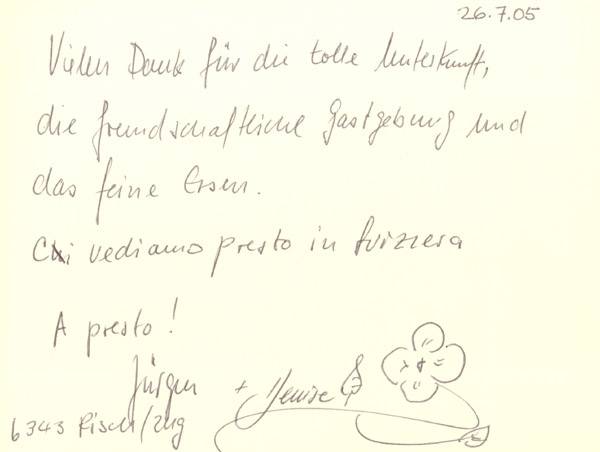 26.7.05
Vielen Dank für die tolle Unterkunft,
die freundschaftliche Gastgebung und
das feine Essen.
Ci vediamo presto in Svizzera
A presto!
Jürgen + Denise
6343 Risch/Zug